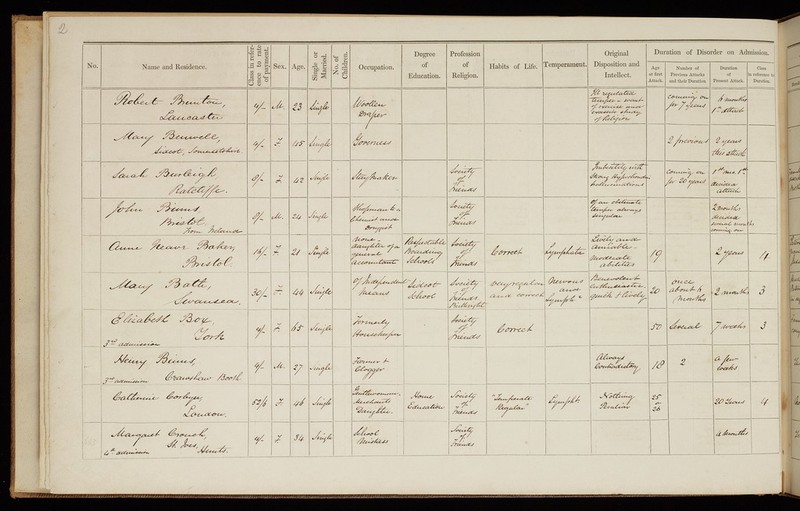 2
No.
Name and Residence.
Class in reference to rate of payment.
Sex.
Age.
Single or Married.
No. of Children.
Occupation.
Degree of Education.
Profession of Religion.
Habits of Life.
Temperament.
Original Disposition and Intellect.
Duration of Disorder on Admission.
Age at first Attack.
Number of Previous Attacks and their Duration
Duration of Present Attack
Class in reference to Duration.
Robert Brunton, Lancaster
4/- M. 23 Single
Woollen Draper
Ill regulated temper
of Religion
coming on for 7 years
6 months
1st attack
Mary
Sidcot, Somersetshire
F. 45 Single
Governess
2 previous
2 years
this attack
Sarah
Ratcliffe.
F. 42 Single
Stay Maker
Society of Friends
Imbecility with strong
coming on for 20 years
attack
John Binns
Bristol
from Ireland
M. 24 Single
Chemist and Druggist
Society of Friends
of an obstinate temper always singular
2 months
several months coming on
Anne Heavor Baker,
Bristol.
16/- F. 21 Single
None, daughter of a general accountant
Respectable Boarding Schools
Society of Friends
Correct
Lymphatic
Lively and amiable moderate abilities
19
2 years
4
Mary Bath,
Swansea.
30/- F. 44 Single
Of Independent Means
Sidcot School
Society of Friends
and correct
Nervous and Lymph.c
Benevolent
gentle & lovely
20
once about 4 months
2 months
3
Elizabeth Box
York
3rd admission
F. 65 Single
Formerly Housekeeper
Society of Friends
Correct
50
Several
7 weeks
3
Henry Binns,
Crawshaw Booth.
admission
M. 27 Single
Farmer & Clogger
Always Contradictory
18
2
a few weeks
Catherine Corbyn,
London.
52/6 F. 46 Single
Gentlewoman, Merchants Daughter
Home Education
Society of Friends
"Temperate Regular"
Lymph.c
Nothing Peculiar
25 or 26
20 Years
4
Margaret Crouch,
St Ives, Hunts.
4th admission
F. 34 Single
School Mistress
Society of Friends
months